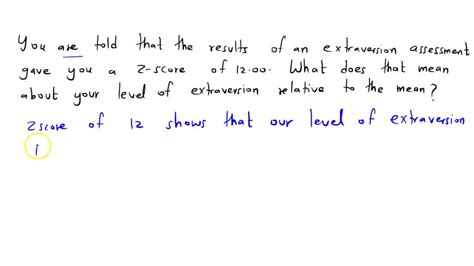 You are told that the results of an extraversion assessment
gave you a Z-score of 12.00. What does that mean
about your level of extraversion relative to the mean?
Zscore of 12 shows that our level of extraversion
i